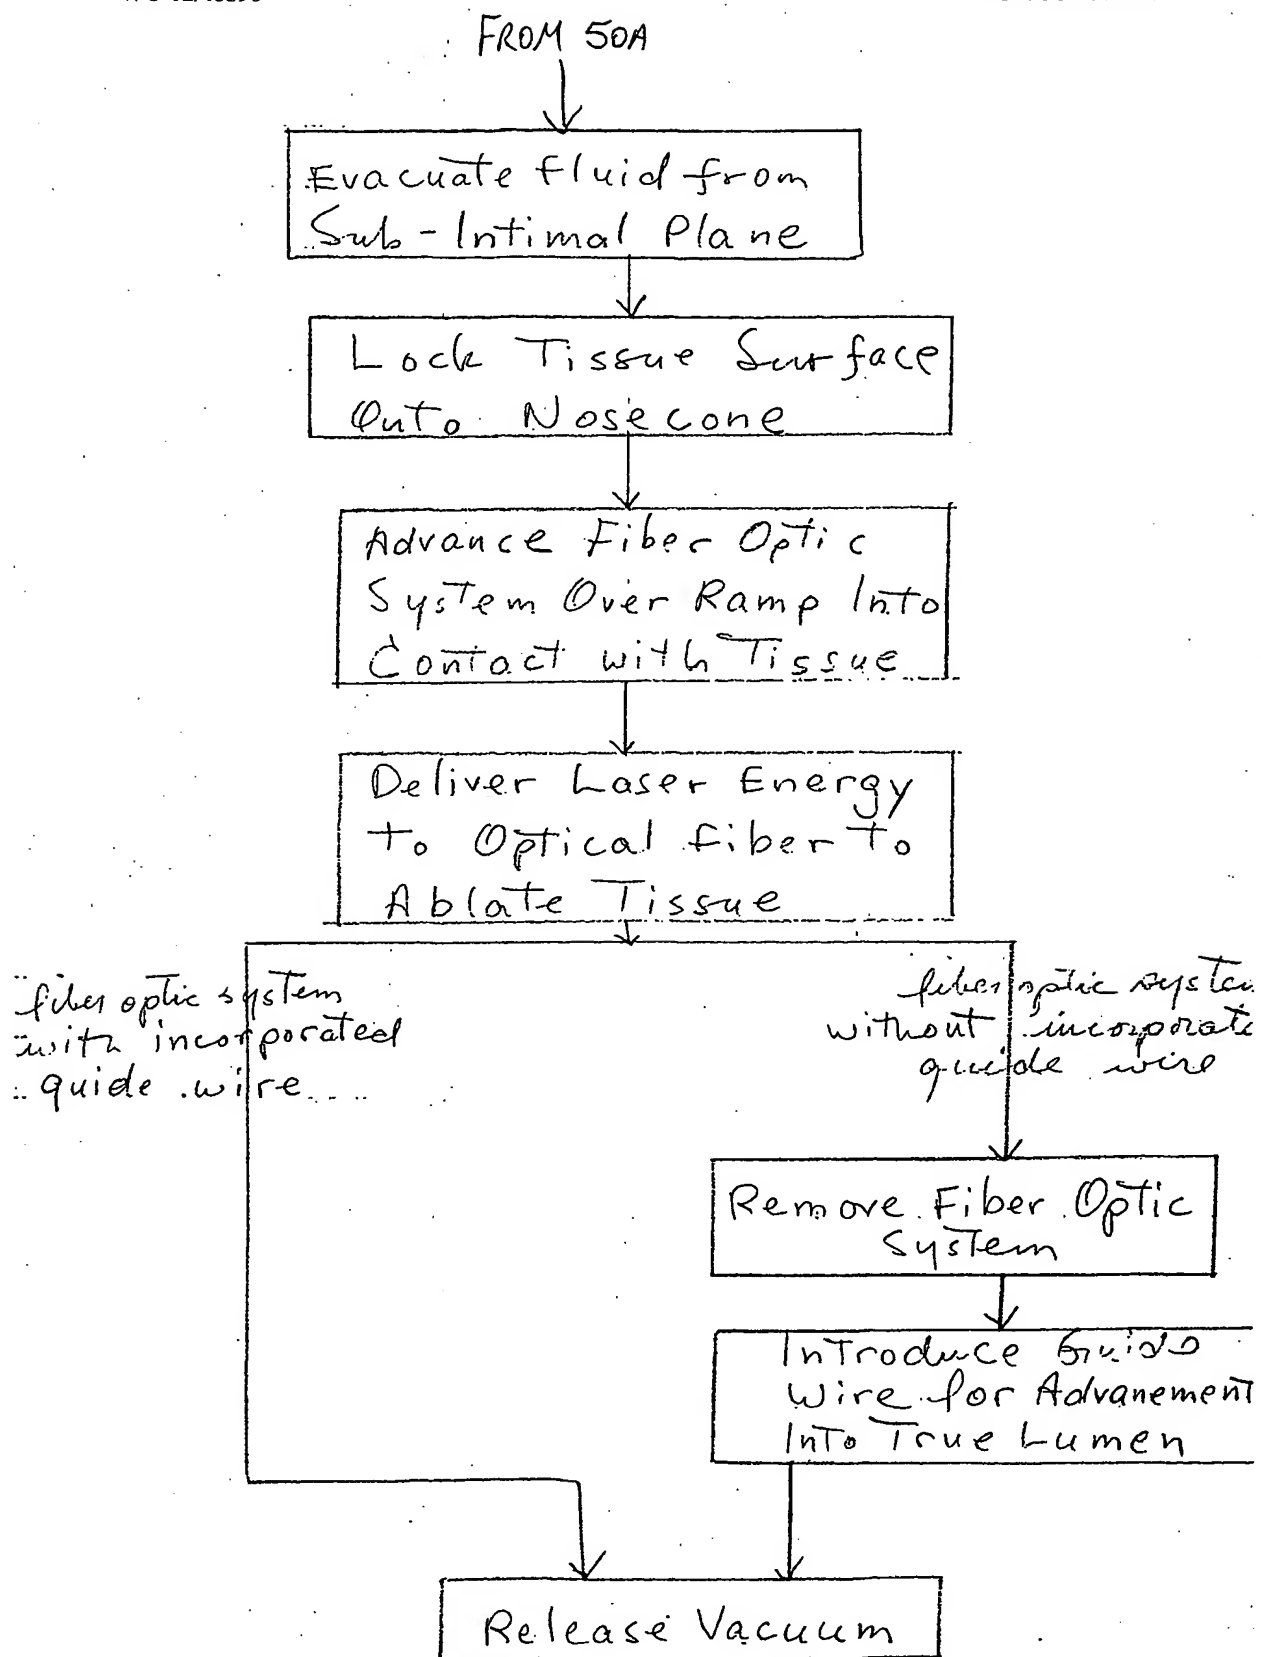 FROM 50A
Evacuate fluid from
Sub-Intimal Plane
Lock Tissue Surface
Onto Nosecone
Advance Fiber Optic
System Over Ramp Into
Contact with Tissue
Deliver Laser Energy
To Optical fiber To
Ablate Tissue
fiber optic system
with incorporated
guide wire
fiber optic system
without incorporate
guide wire
Remove Fiber Optic
System
Introduce Guide
Wire for Advanement
Into True Lumen
Release Vacuum